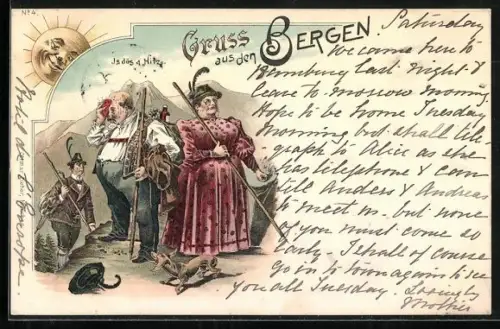 No 4.
Gruss
aus den
BERGEN.
Is das a Hitz
Saturday
We came here to
last night &
leave to morrow morning.
Hope to be home Tuesday
morning but shall tele-
graph to Alice as she
has telephone & can
tell Anders & Andreas
to meet us. but none
of you must come so
early. I shall of course
go in to town again to see
you all Tuesday. Lovingly
Mother
Hotel de l'Europe.